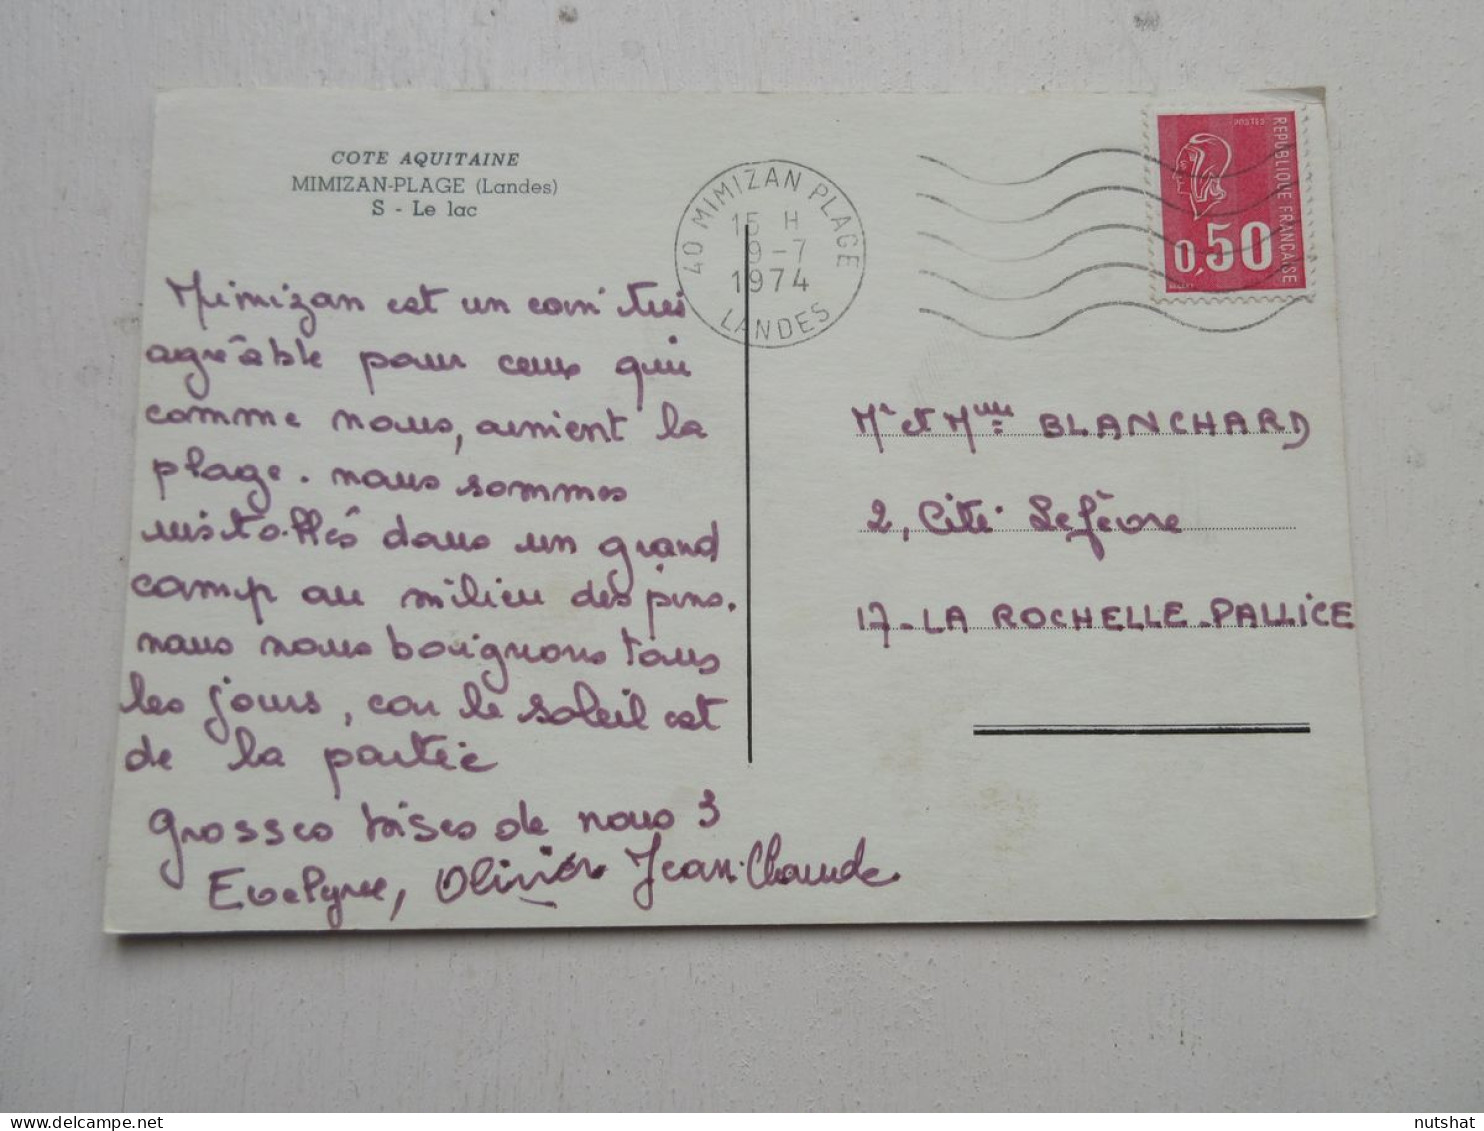 COTE AQUITAINE
MIMIZAN-PLAGE (Landes)
S - Le lac
40 MIMIZAN PLAGE
15 H
9-7
1974
LANDES
POSTES
REPUBLIQUE FRANÇAISE
0,50
Mimizan est un coin très
agréable pour ceux qui
comme nous, aiment la
plage. nous sommes
installés dans un grand
camp au milieu des pins.
nous nous baignons tous
les jours, car le soleil est
de la partie
grosses bises de nous 3
Evelyne, Olivier Jean-Claude.
Mr et Mme BLANCHARD
2, Cité Lefèvre
17-LA ROCHELLE-PALLICE
nutshat